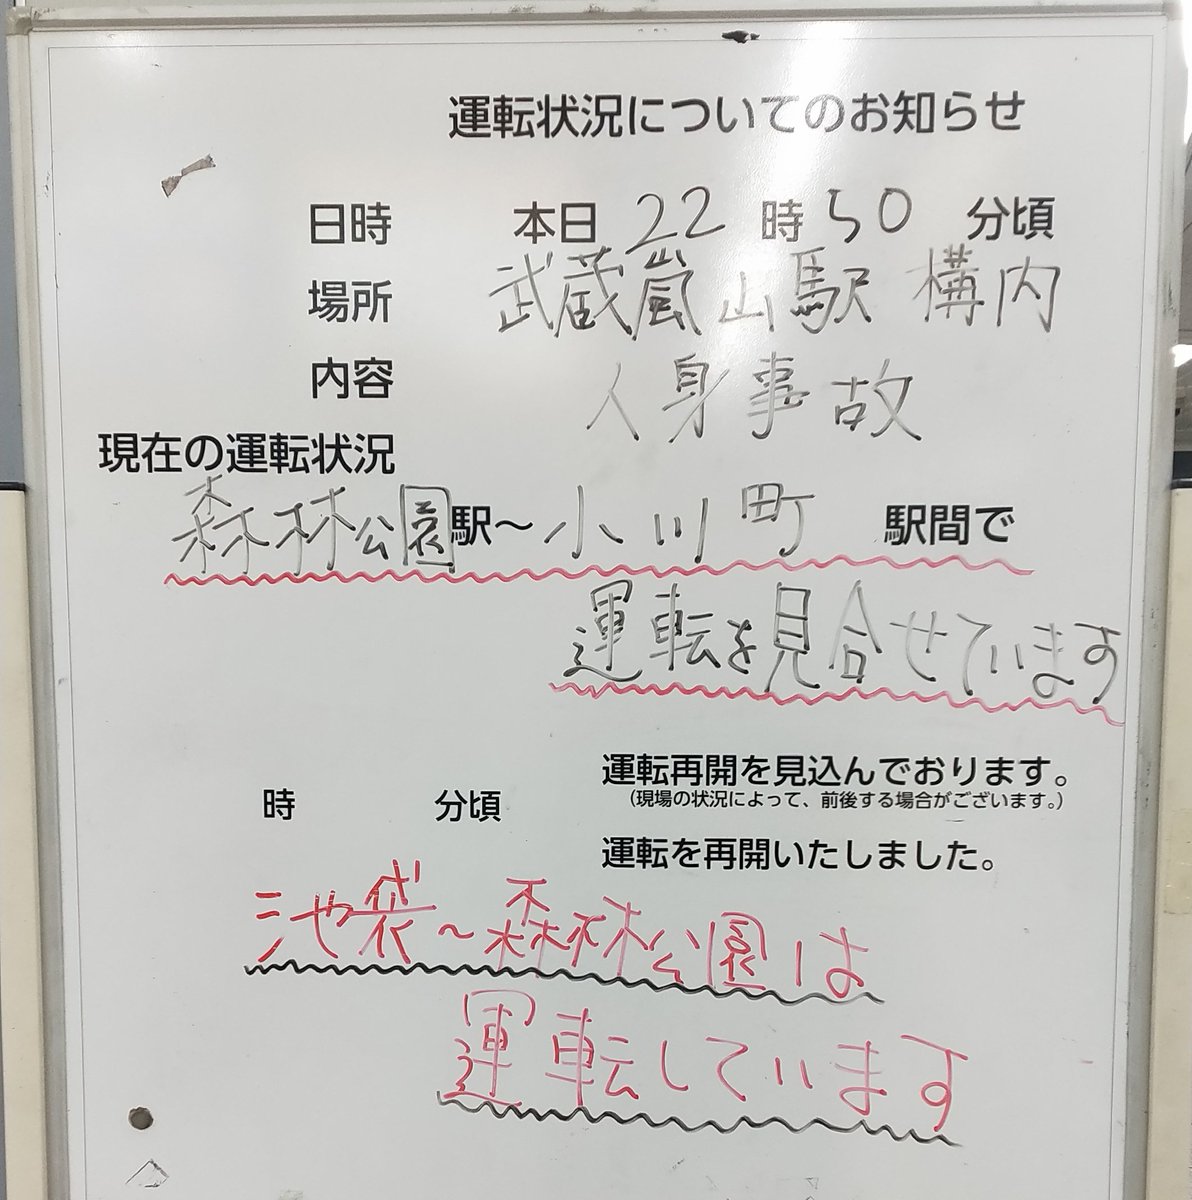 運転状況についてのお知らせ
日時 本日 22 時 50 分頃
場所 武蔵嵐山駅 構内
内容 人身事故
現在の運転状況
森林公園駅～小川町 駅間で
運転を見合せています
運転再開を見込んでおります。
時 分頃 （現場の状況によって、前後する場合がございます。）
運転を再開いたしました。
池袋～森林公園は
運転しています